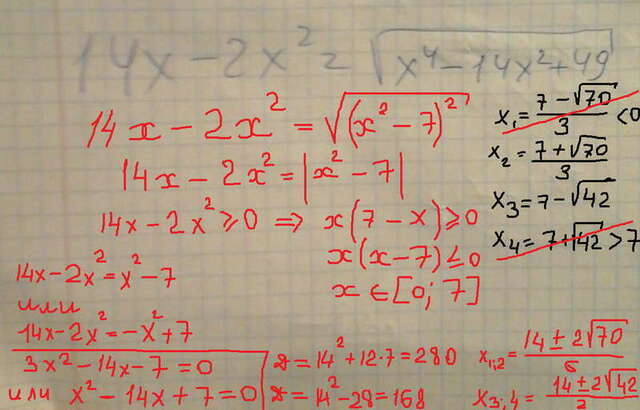 14x - 2x² = √(x⁴ - 14x² + 49)
14x - 2x² = √((x² - 7)²)
14x - 2x² = |x² - 7|
14x - 2x² ≥ 0 ⇒ x(7 - x) ≥ 0
x(x - 7) ≤ 0
x ∈ [0; 7]
14x - 2x² = x² - 7
или
14x - 2x² = -x² + 7
3x² - 14x - 7 = 0
или x² - 14x + 7 = 0
D = 14² + 12·7 = 280
D = 14² - 28 = 168
x₁,₂ = (14 ± 2√70)/6
x₃,₄ = (14 ± 2√42)/2
x₁ = (7 - √70)/3 < 0
x₂ = (7 + √70)/3
x₃ = 7 - √42
x₄ = 7 + √42 > 7